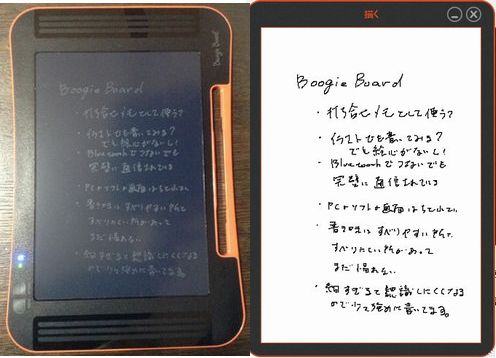 Boogie Board
Boogie Board
打合せメモとして使う?
・イラストも書いてみる?
でも絵心がないし!
・Bluetoothでつないでも
完璧に通信されている
・PCソフトの画面は
・書き味はすべりやすい所と
すべりにくい所があって
まだ慣れない
・細すぎると認識しにくくなる
ので少々強めに書いてます。
描く
Boogie Board
・打合せメモとして使う?
・イラストも書いてみる?
でも絵心がないし!
・Bluetoothでつないでも
完璧に通信されている
・PCソフトの画面は
・書き味はすべりやすい所と
すべりにくい所があって
まだ慣れない
・細すぎると認識しにくくなる
ので少々強めに書いてます。